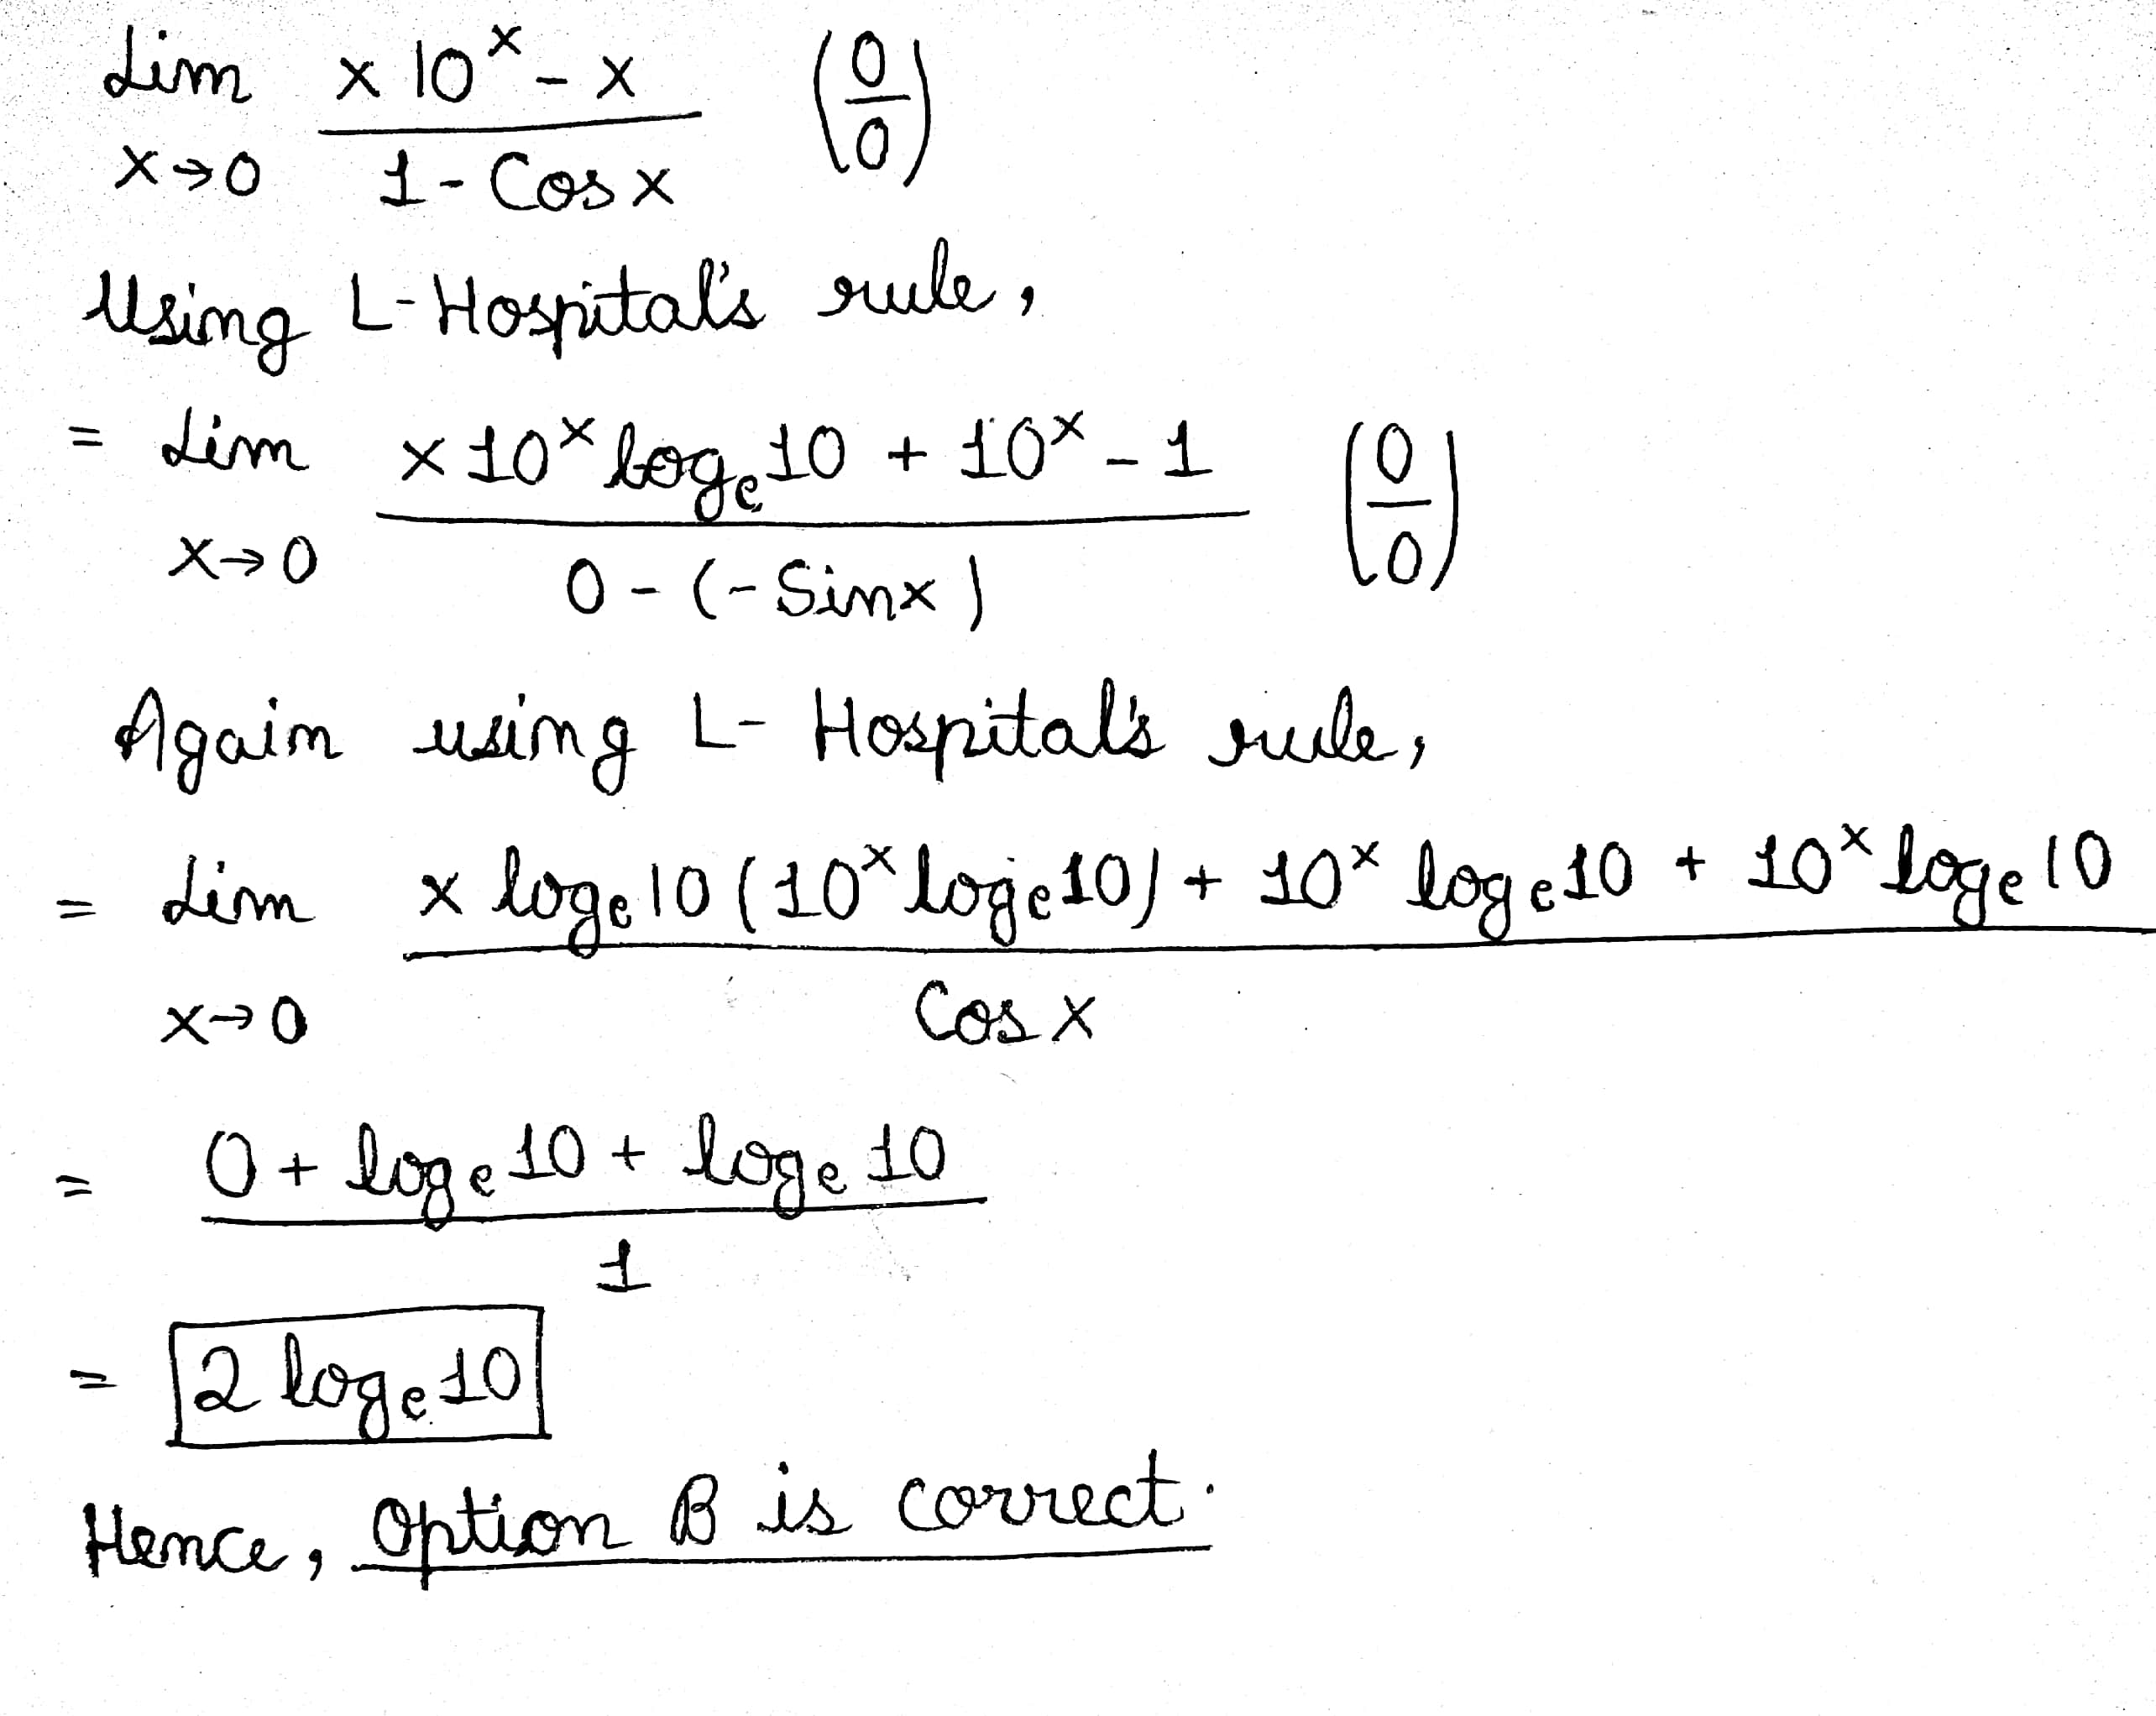 Lim x 10^x - x (0/0)
x→0 1 - Cos x
Using L-Hospital's rule,
= Lim x 10^x log_e 10 + 10^x - 1 (0/0)
x→0 0 - (- Sinx)
Again using L- Hospital's rule,
= Lim x log_e 10 (10^x log_e 10) + 10^x log_e 10 + 10^x log_e 10
x→0 Cos x
= 0 + log_e 10 + log_e 10
1
= 2 log_e 10
Hence, Option B is correct.